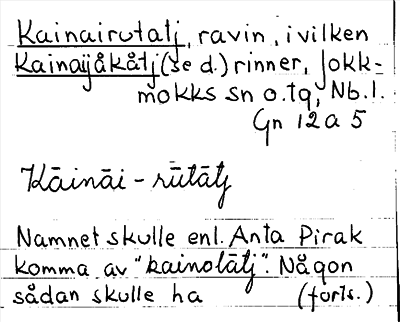 Kainairutatj, ravin, i vilken
Kainaijåkåtj (se d.) rinner, Jokk-
mokks sn o. tg, Nb. l.
Gn 12 a 5
Kāināi - rūtātj
Namnet skulle enl. Anta Pirak
komma av "kainolātj". Någon
sådan skulle ha (forts.)